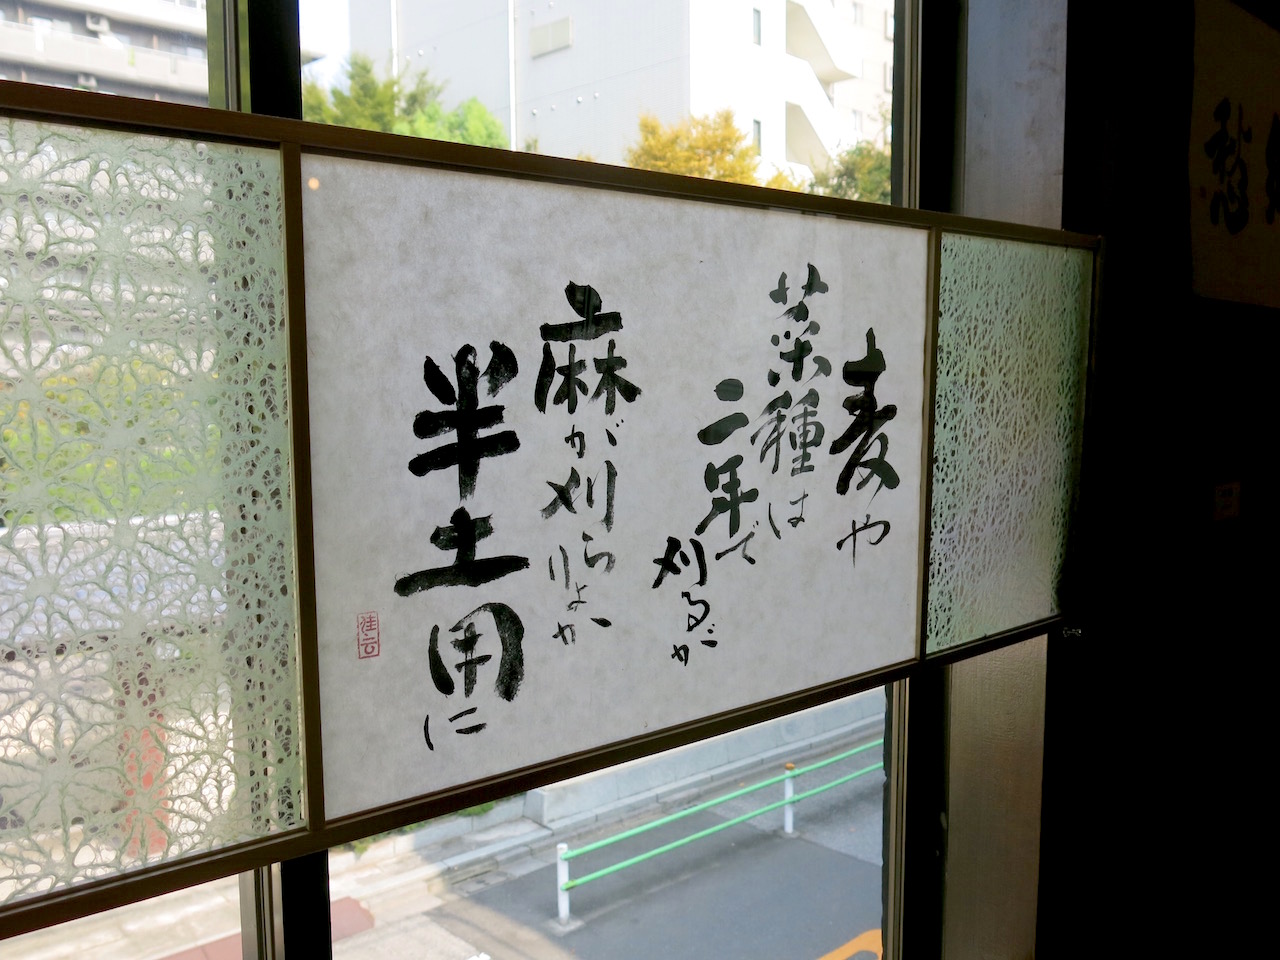 麦や
菜種は
二年で
刈るが
麻が刈らりょか
半土用に
佳云